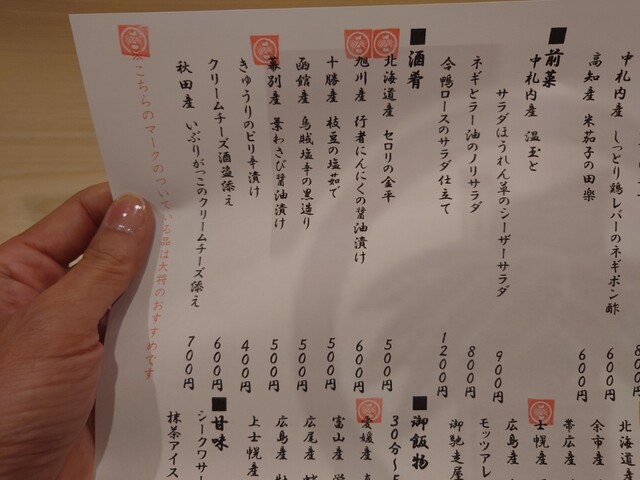 前菜
中札内産 しっとり鶏レバーのネギポン酢 600円
高知産 米茄子の田楽 600円
中札内産 温玉と
サラダほうれん草のシーザーサラダ 900円
ネギとラー油のノリサラダ 800円
合鴨ロースのサラダ仕立て 1200円
酒肴
北海道産 セロリの金平 500円
旭川産 行者にんにくの醤油漬け 600円
十勝産 枝豆の塩茹で 500円
函館産 烏賊塩辛の黒造り 500円
幕別産 葉わさび醤油漬け 500円
きゅうりのピリ辛漬け 400円
クリームチーズ酒盗添え 600円
秋田産 いぶりがっこのクリームチーズ添え 700円
※こちらのマークのついている品は大将のおすすめです
北海道
余市産
帯広産
士幌産
広島産
モッツアレ
御馳走屋
御飯物
30分〜
愛媛産
富山産
広尾産
広島産
上士幌産
甘味
シークワサー
抹茶アイス